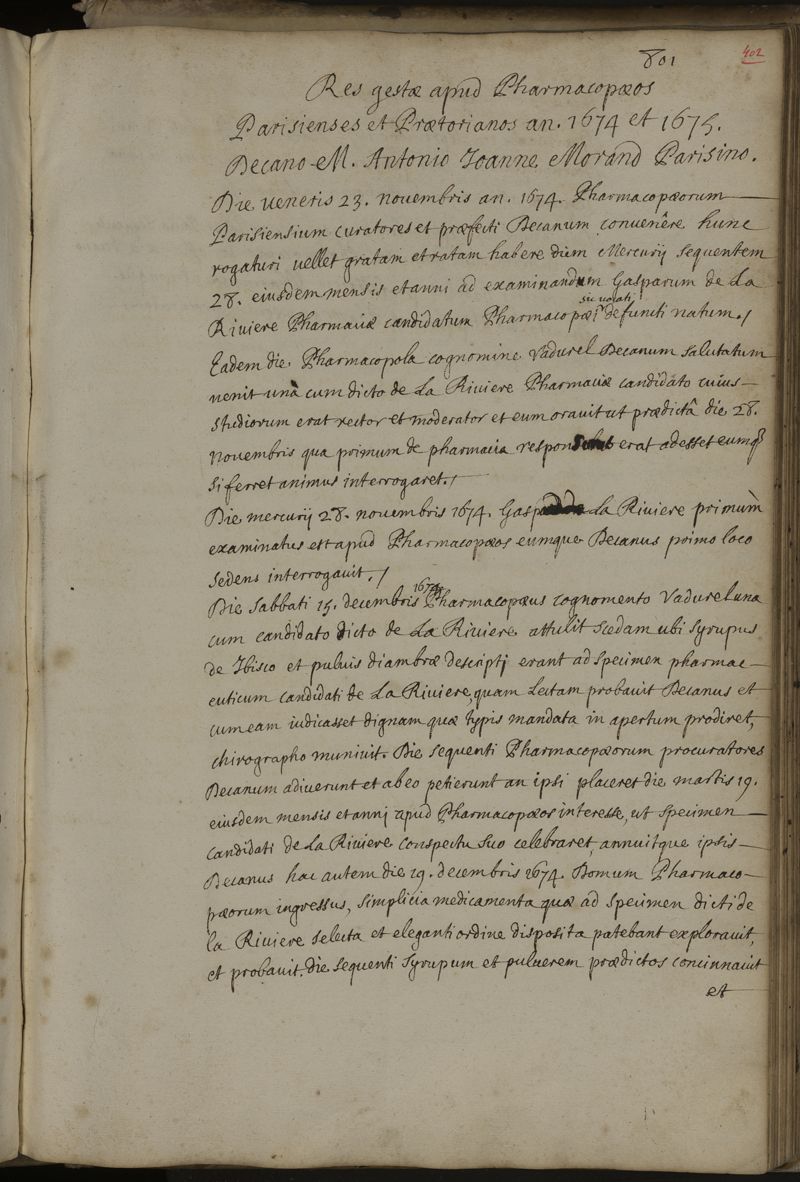 801
402
Res gestæ apud Pharmacopæos
Parisienses et Prætorianos an. 1674 et 1675.
Decano M. Antonio Joanne Morand Parisino.
Die veneris 23. novembris an. 1674. Pharmacopæorum
Parisiensium curatores et præfecti Decanum convenêre hunc
rogaturi vellet gratam et ratam habere diem Mercurij sequentem
28. eiusdem mensis et anni ad examinandum Gasparum de La
Riviere Pharmaciæ candidatum Pharmacopæi sic vocati defuncti natum./
Eadem die Pharmacopola cognomine Vadurel Decanum salutatum
venit unà cum dicto de La Riviere Pharmaciæ candidato cuius
studiorum erat rector et moderator et eum oravit ut prædictâ die 28.
Novembris qua primum de pharmacia erat adesset eumq3
si ferret animus interrogaret./
Die mercurij 28. novembris 1674. La Riviere primùm
examinatus est apud Pharmacopæos eumque Decanus primo loco
sedens interrogavit./
Die Sabbati 15. decembris 1674 Pharmacopæus cognomento Vadurel una
cum candidato dicto de La Riviere attulit scedam ubi syrupus
de Ibisco et pulvis diambræ descriptj erant ad specimen pharmac-
euticum candidati de La Riviere, quam Lectam probavit Decanus et
cum eam iudicasset dignam quæ typis mandata in apertum prodiret,
chirographo munivit. Die sequenti Pharmacopæorum procuratores
Decanum adiverunt et ab eo petierunt an ipsi placeret die martis 19.
eiusdem mensis et annj apud Pharmacopæos interesse, ut specimen
candidati de La Riviere conspectu suo celebraret, annuitque ipsis
Decanus hac autem die 19. decembris 1674. Domum Pharmaco-
pæorum ingressus, simplicia medicamenta quæ ad specimen dicti de
la Riviere selecta et eleganti ordine disposita patebant exploravit,
et probavit. die sequenti syrupum et pulverem prædictos concinnavit
et